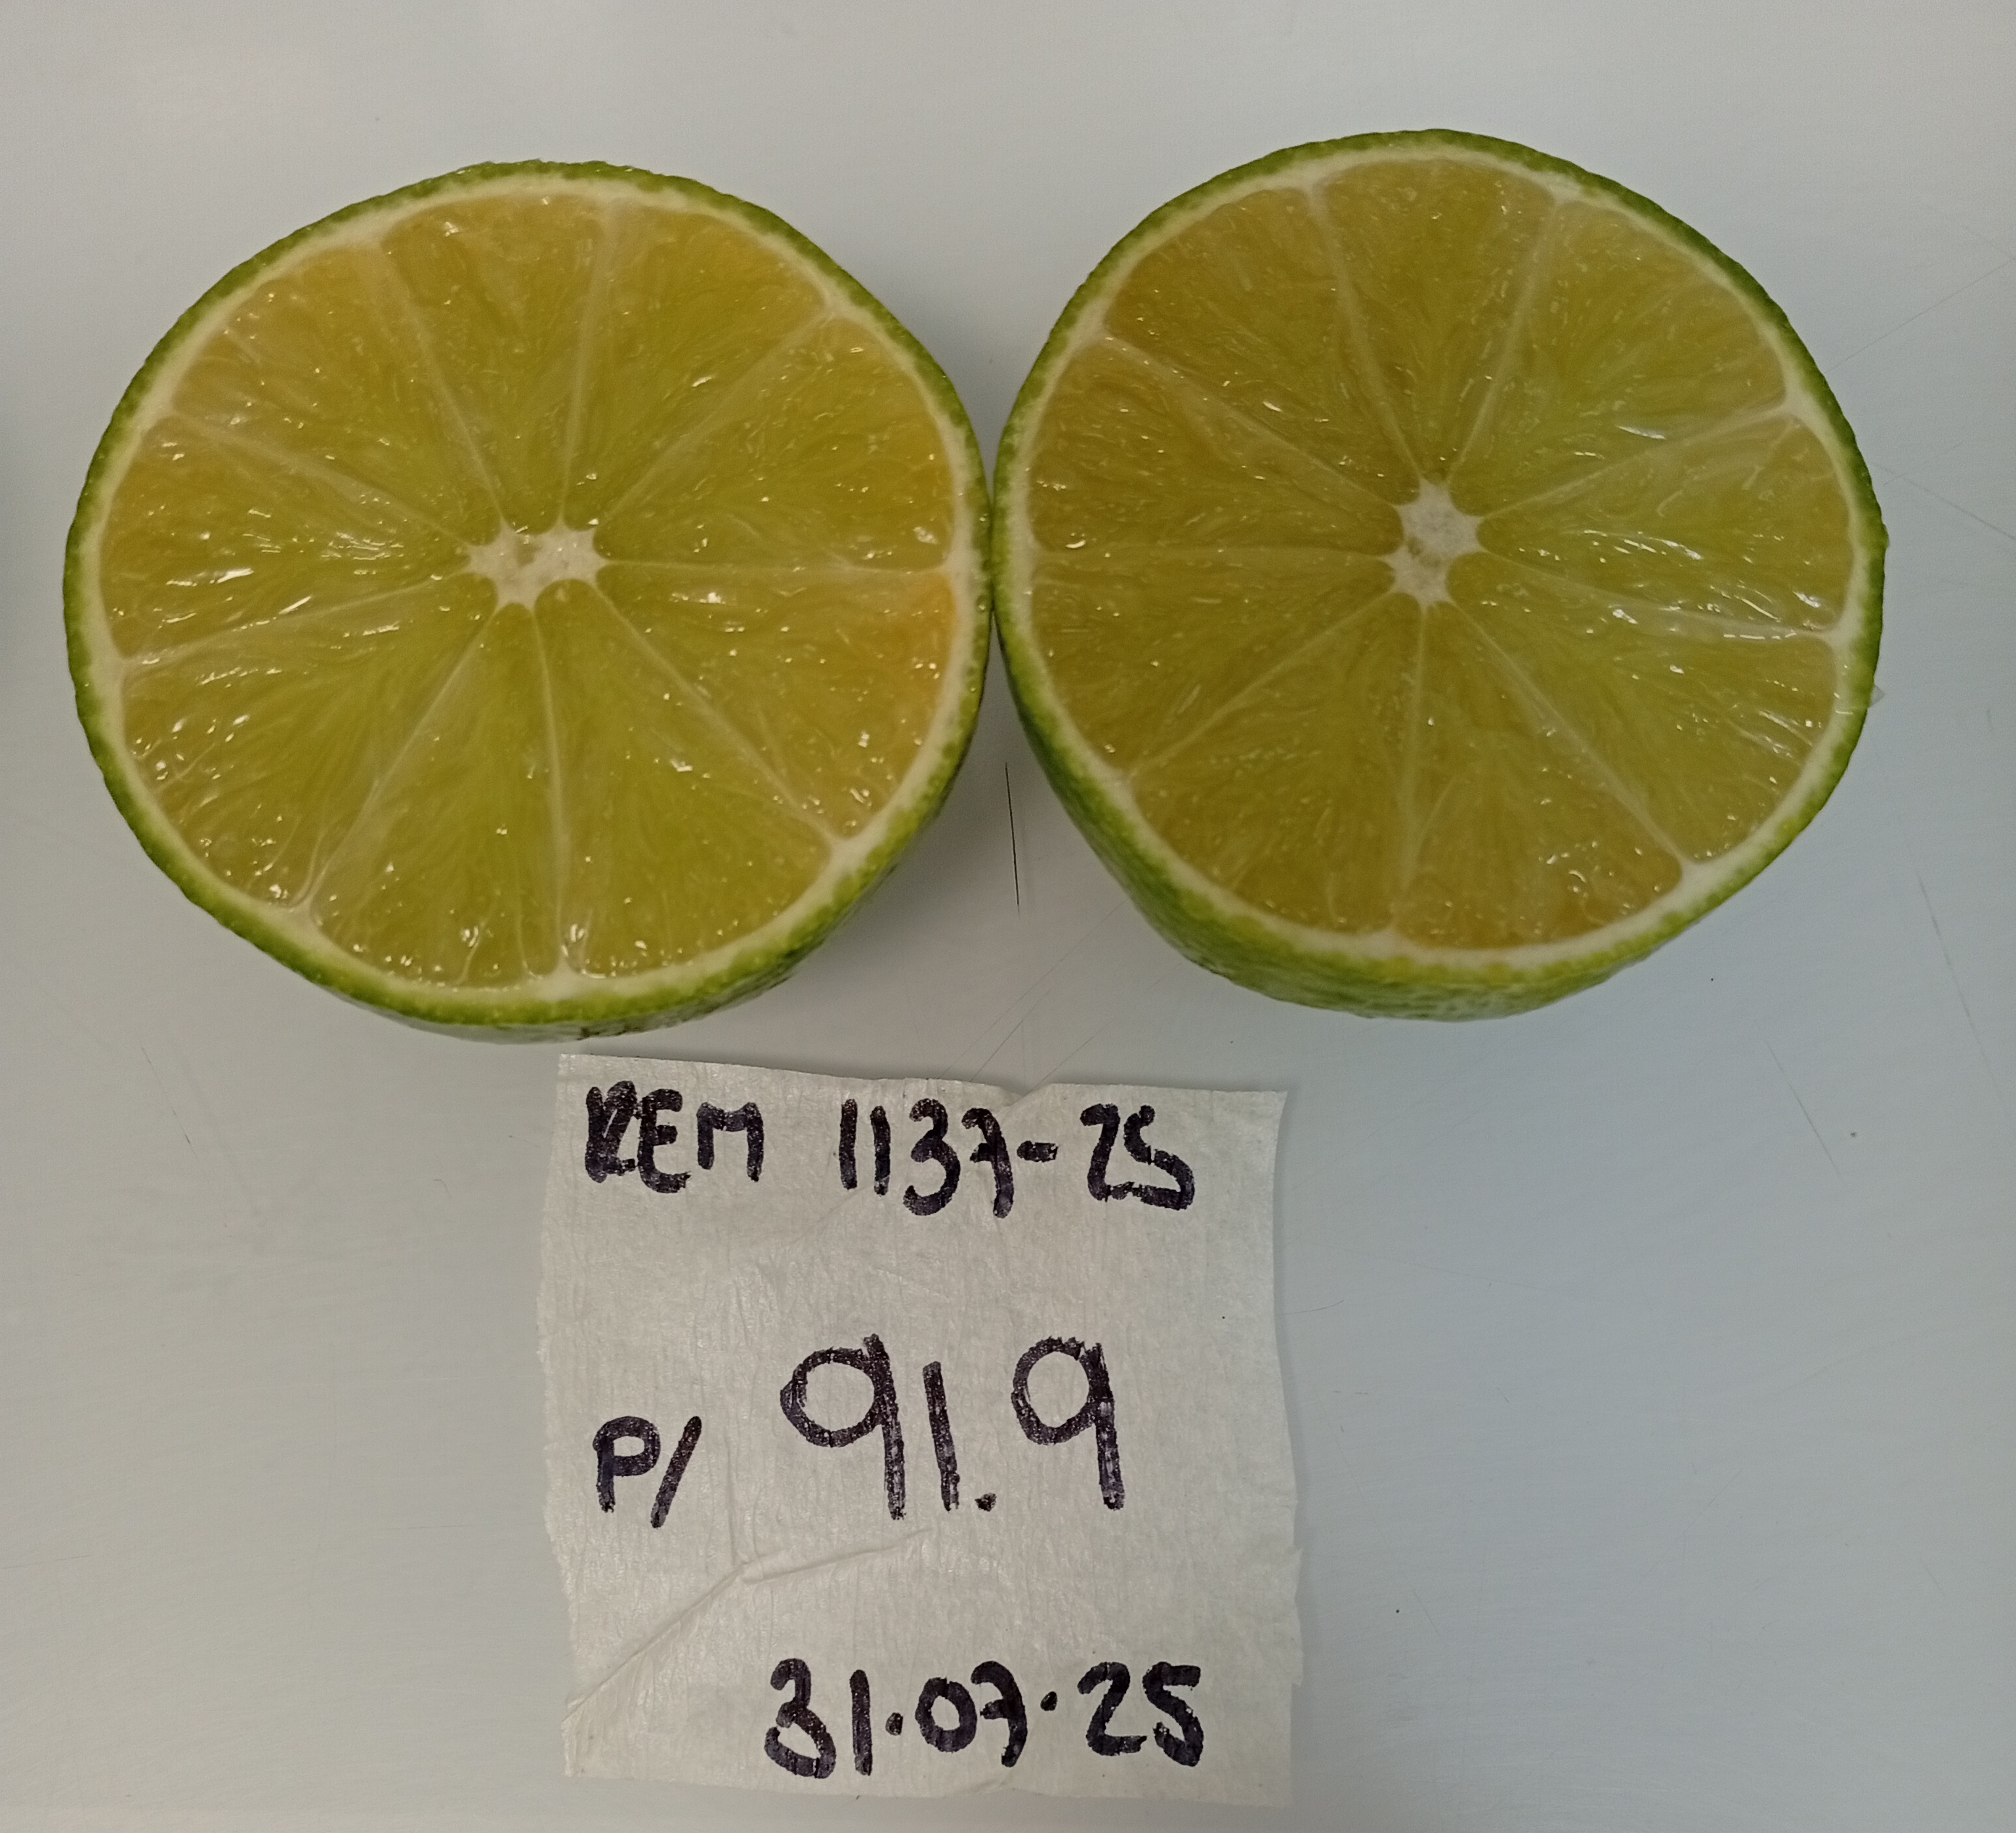 REM 1137-25
P/ 91.9
31.07.25